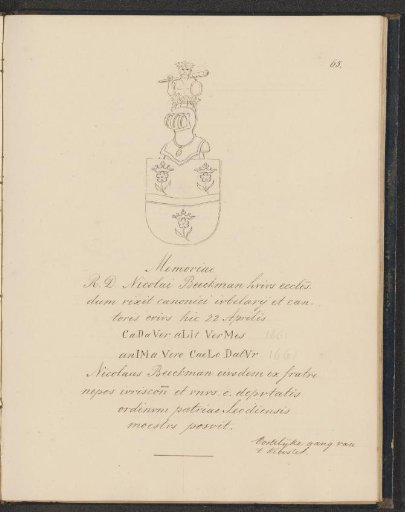 65.
Memoriae
R. D. Nicolai Beeckman hvivs eccles.
dum vixit canonici ivbelarij et can-
toris obivs hic 22 Aprilis
CaDaVer aLit VerMes 1661
anIMa Vero CaeLo DatVr 1661
Nicolaus Beeckman eivsdem ex fratre
nepos ivriscon̄ et vnvs e depvtatis
ordinvm patriae Leodiensis
moestvs posvit.
Oostelijke gang van
't